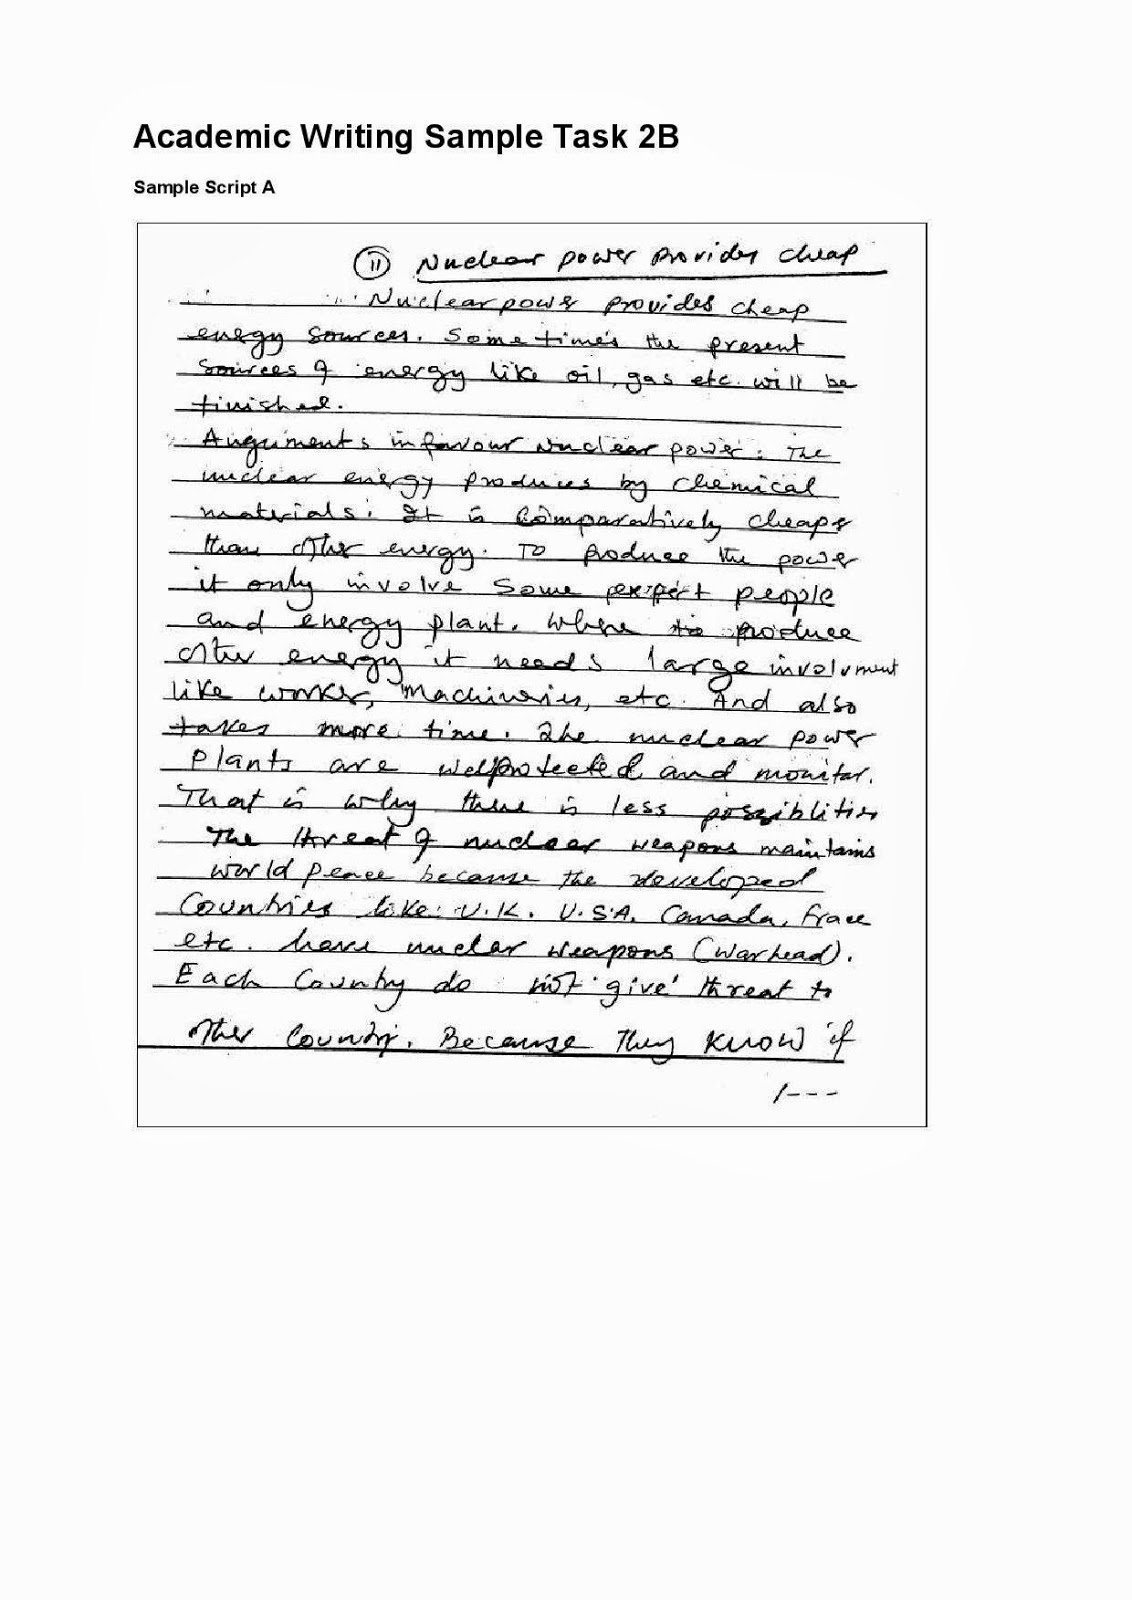 Academic Writing Sample Task 2B
Sample Script A
11 Nuclear power provides cheap
Nuclear power provides cheap
energy sources. Sometimes the present
sources of energy like oil, gas etc. will be
finished.
Arguments in favour nuclear power: The
nuclear energy produces by chemical
materials. It is comparatively cheape
than other energy. To produce the power
it only involve some expert people
and energy plant. Where to produce
other energy it needs large involvment
like worker, machineries, etc. And also
takes more time. The nuclear power
plants are wellprotected and monitar.
That is why there is less possiblities
The threat of nuclear weapons maintains
world peace because the developed
Countries like U.K. U.S.A, Canada, Frace
etc. have nuclear weapons (warhead).
Each Country do not give threat to
other Country. Because They know if
/---